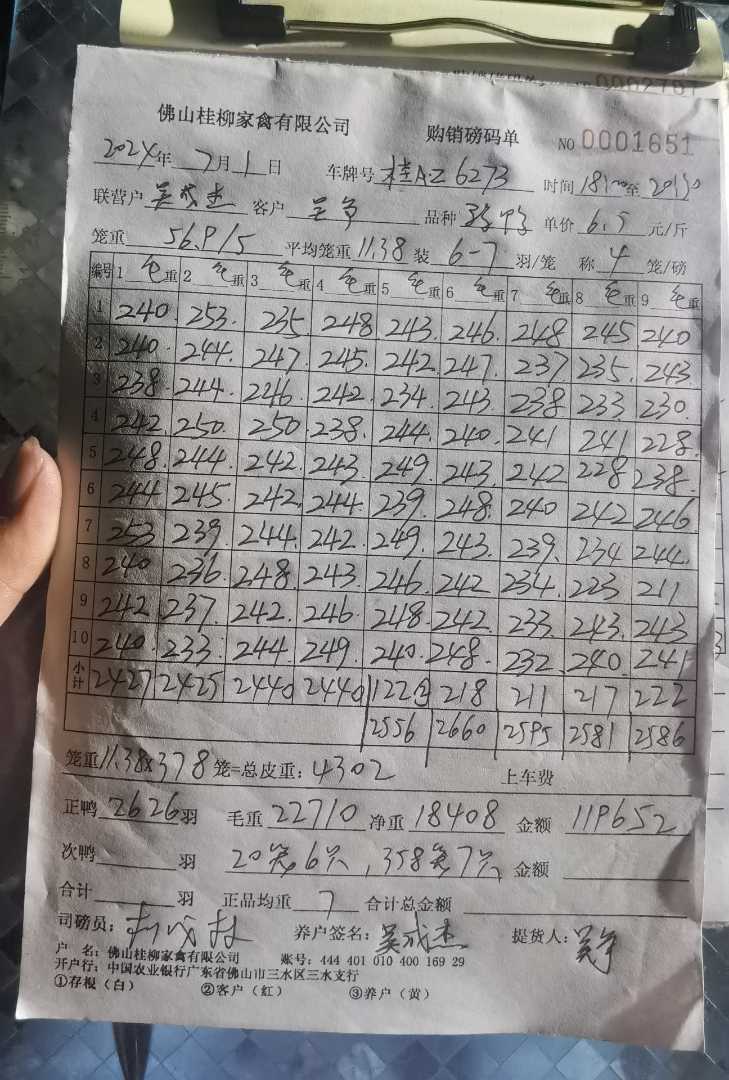 佛山桂柳家禽有限公司 购销磅码单 NO 0001651
2024年 7月 1日 车牌号 桂AZ6273 时间 18:00至20:30
联营户 吴成杰 客户 吴争 品种 单价 6.5 元/斤
笼重 56.9/5 平均笼重 11.38 装 6-7 羽/笼 称 4 笼/磅
编号 1 毛重 2 毛重 3 毛重 4 毛重 5 毛重 6 毛重 7 毛重 8 毛重 9 毛重
1 240. 253. 235 248 243. 246. 248 245 240
2 240. 244. 247. 245. 242. 247. 237 235. 243
3 238. 244. 246. 242. 234. 243. 238 233. 230.
4 242. 250. 250. 238. 244. 240. 241 241 228.
5 248. 244. 242. 243. 249. 243. 242 228 238.
6 244 245. 242. 244. 239. 248. 240 242 246
7 253 239. 244. 242. 249. 243. 239. 234 244.
8 240 236. 248. 243. 246. 242 234. 223 211
9 242. 237. 242. 246. 248. 242. 233. 243. 243
10 240. 233. 244. 249. 240. 248. 232. 240. 241
小计 2427 2425 2440 2440 122 218 211 217 222
2556 2660 2595 2581 2586
笼重 11.38x378 笼=总皮重: 4302 上车费
正鸭 2626 羽 毛重 22710 净重 18408 金额 119652
次鸭 羽 20笼6只, 358笼7只, 金额
合计 羽 正品均重 7 合计总金额
司磅员: 养户签名: 吴成杰 提货人: 吴争
户 名: 佛山桂柳家禽有限公司 账号: 444 401 010 400 169 29
开户行: 中国农业银行广东省佛山市三水区三水支行
①存根（白） ②客户（红） ③养户（黄）